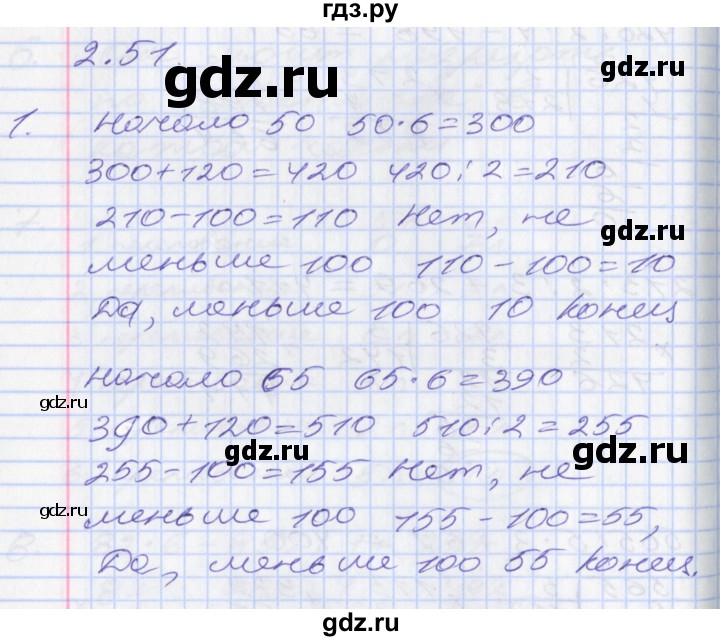 гдз.ру
2.51.
gdz.ru
1. Начало 50 50·6=300
300+120=420 420:2=210
gdz.ru
210-100=110 Нет, не
gdz.ru
меньше 100 110-100=10
Да, меньше 100 10 конец
Начало 65 65·6=390
gdz.ru
390+120=510 510:2=255
gdz.ru
gdz.ru
255-100=155 Нет, не
gdz.ru
меньше 100 155-100=55,
Да, меньше 100 55 конец.
gdz.ru
gdz.ru